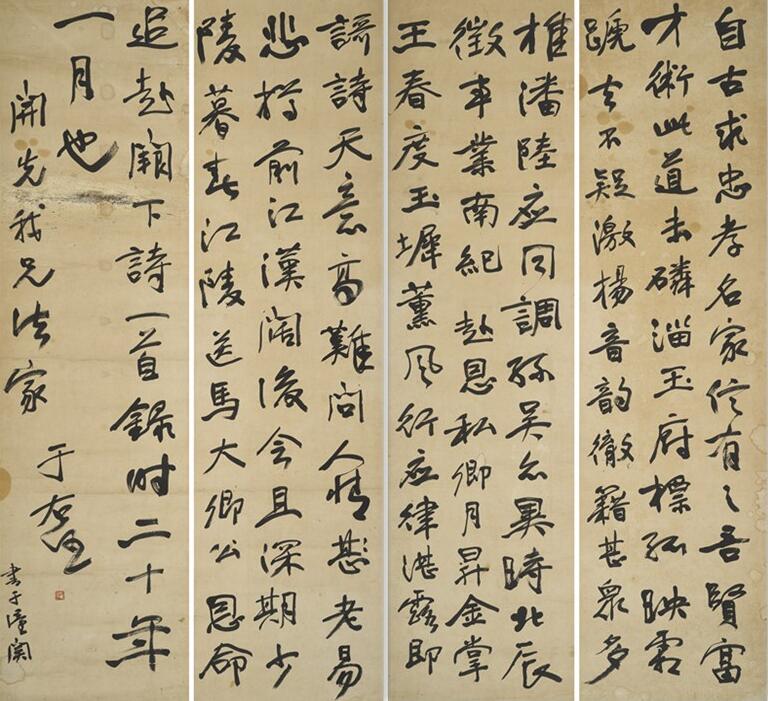 自古求忠孝名家信有之吾賢富
才術此道未磷淄玉府標孤映霜
蹏去不疑激揚音韵徹籍甚眾多
推潘陸應同調孫吳亦異時北辰
徵事業南紀赴恩私卿月昇金掌
王春度玉墀薰風行應律湛露即
謌詩天意高難問人情甚老易
悲樽前江漢闊後會且深期少
陵暮春江陵送馬大卿公恩命
追赴闕下詩一首錄時二十年
一月也
開先我兄法家
于右任
書于潼關